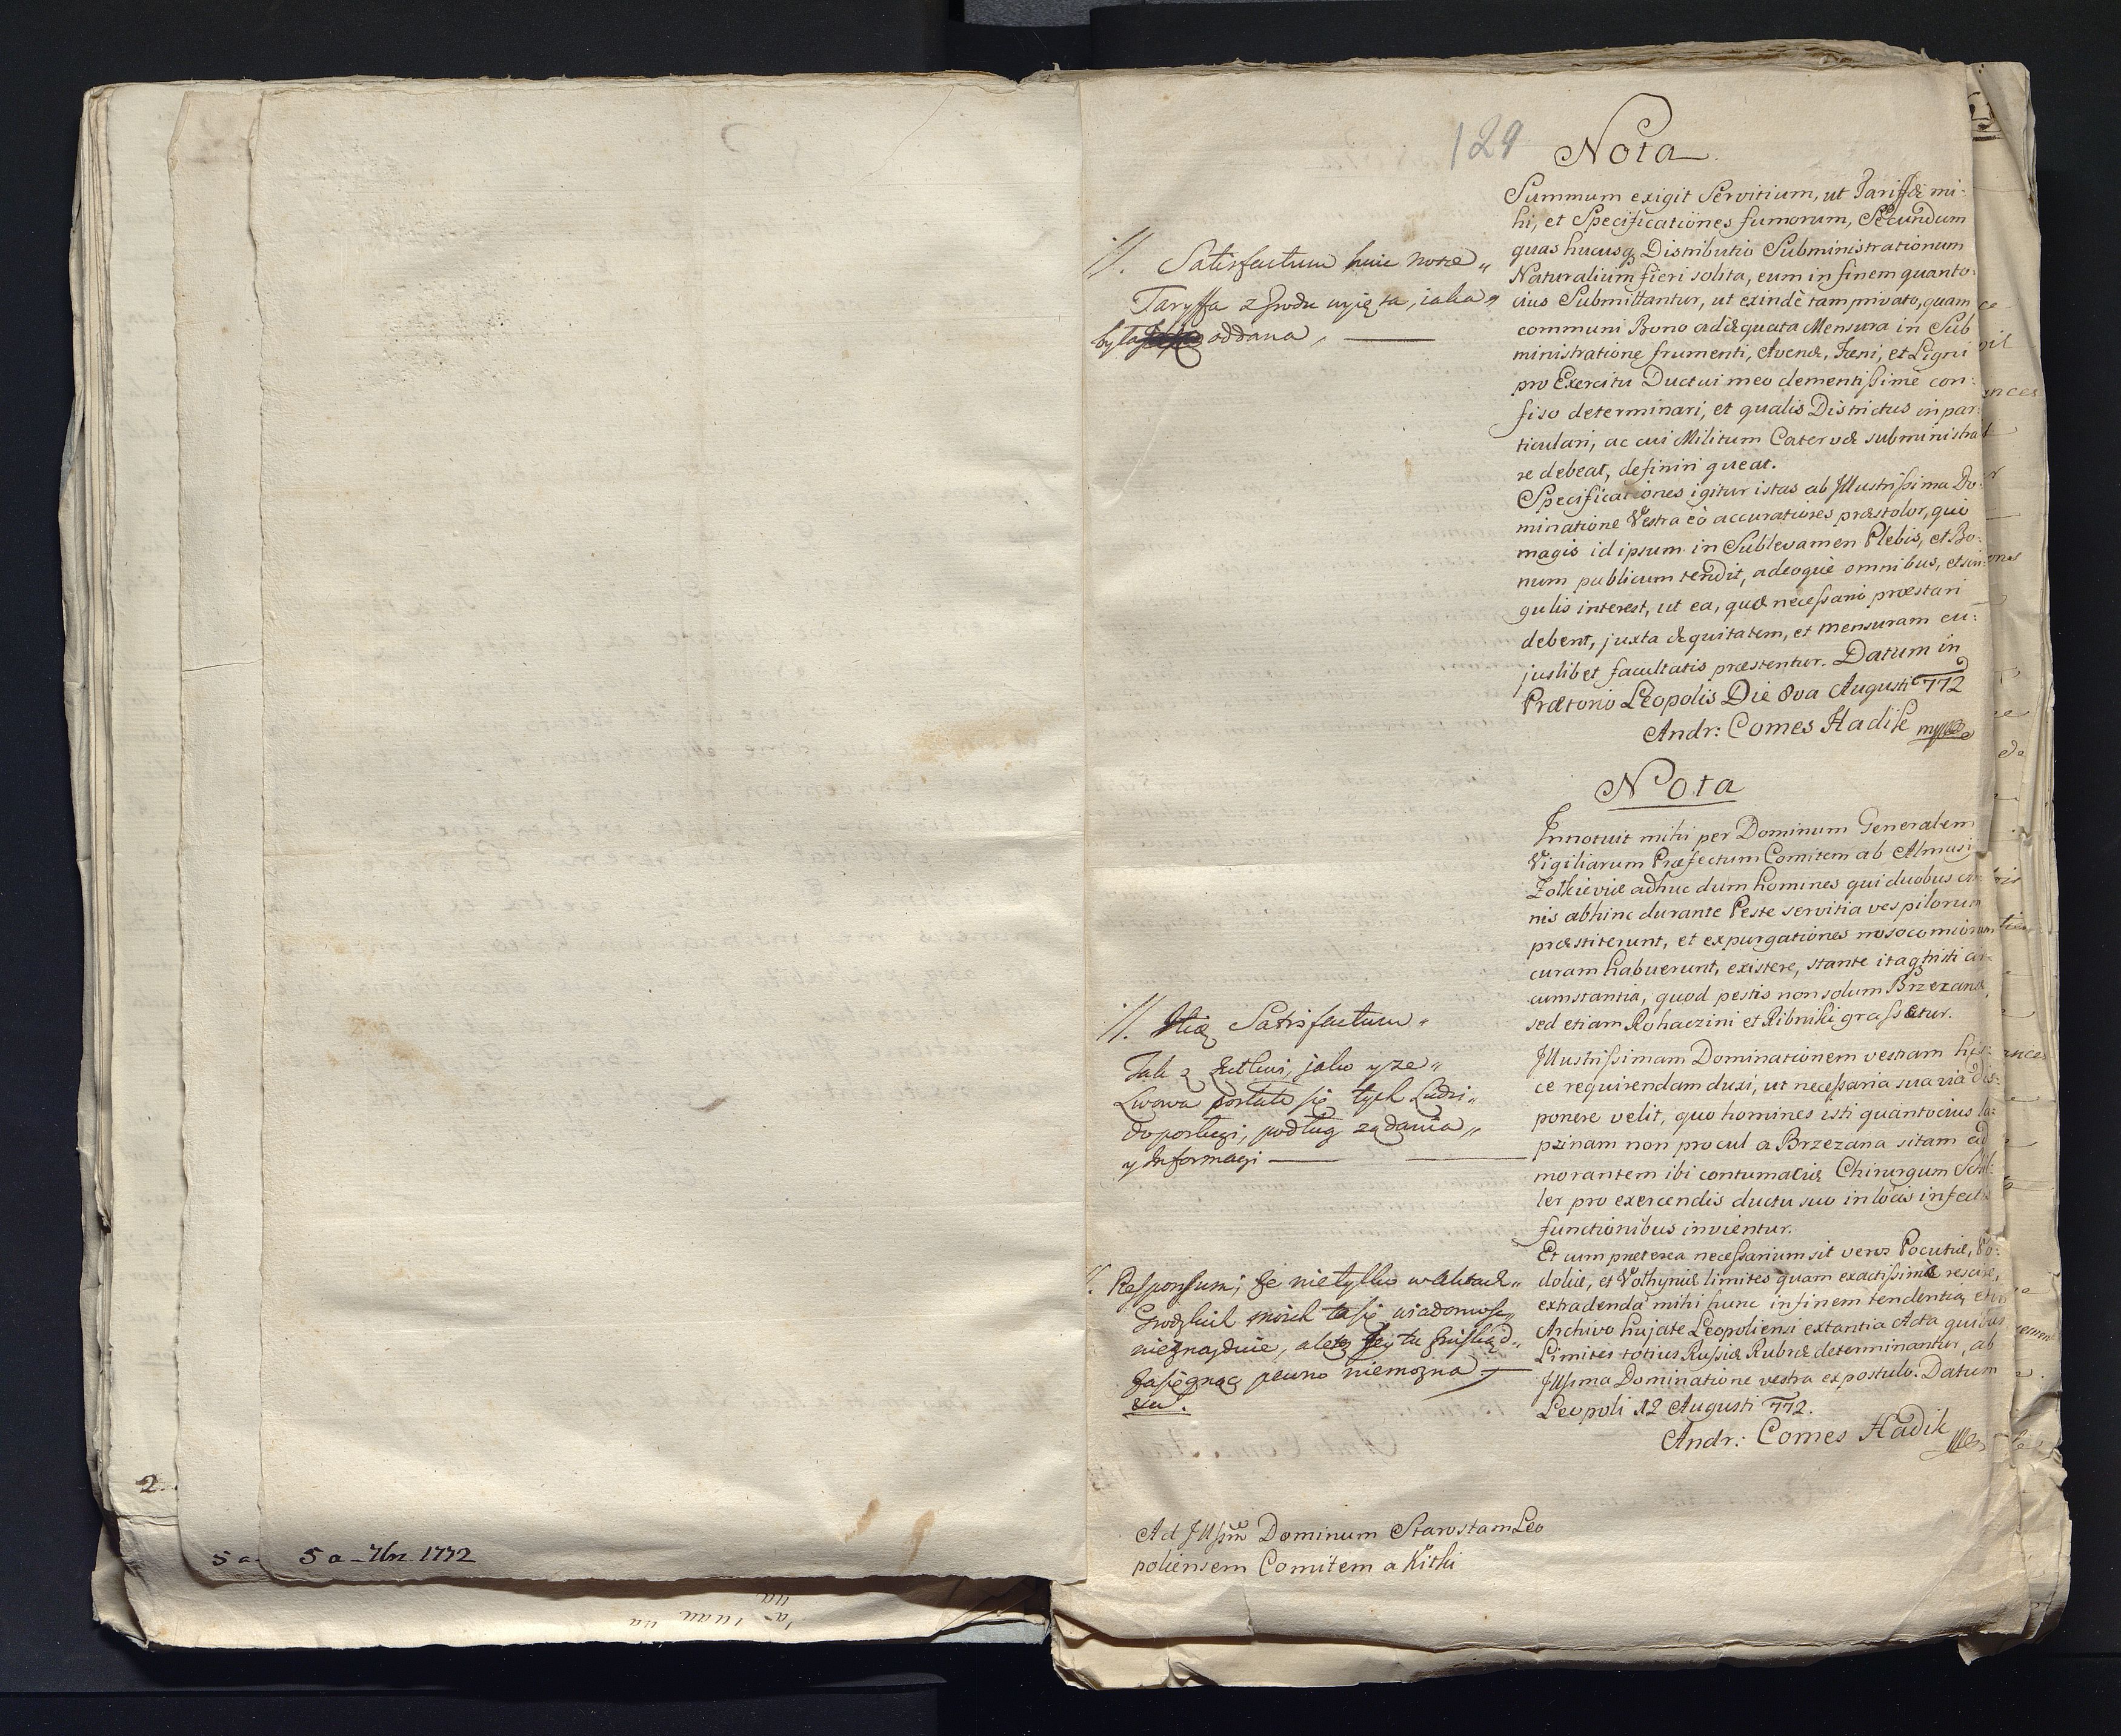 129
Nota
Summum exigit Servitium, ut Tariffæ mi-
hi, et Specificationes fumorum, Secundum
quas hucusq3 Distributio Subministrationum
Naturalium fieri solita, eum in finem quanto-
cius Submittantur, ut exindè tam privato, quam
communi Bono adæquata Mensura in Sub
ministratione frumenti, Avenæ, Fæni, et Ligni
pro Exercitu Ductui meo clementissimè con-
fiso determinari, et qualis Districtus in par-
ticulari, ac cui Militum Catervæ subministra
re debeat, definiri queat.
Specificationes igitur istas ab Illustrissima Do-
minatione Vestra eò accuratiores præstolor, quo
magis id ipsum in Sublevamen Plebis, et Bo-
num publicum tendit, adeoque omnibus, et sin
gulis interest, ut ea, quæ necessario præstari
debent, juxta æquitatem, et mensuram cu-
juslibet facultatis præstentur. Datum in
Prætorio Leopolis Die 8va Augusti 772
Andr: Comes Hadik
//. Satisfactum huic notæ
Taryffa z Grodu wyięta, iaka
była oddana, —
Nota
Innotuit mihi per Dominum Generalem
Vigiliarum Præfectum Comitem ab Almasi
Zolkieviæ adhuc dum homines qui duobus an
nis abhinc durante Peste servitia vespilorum
præstiterunt, et expurgationes nosocomiorum
curam habuerunt, existere, stante itaq3 tristi cir
cumstantia, quod pestis non solum Brzezanæ,
sed etiam Rohaczini et Ribniki grassetur.
Illustrissimam Dominationem vestram his-
ce requirendam duxi, ut necessaria sua via dis-
ponere velit, quo homines isti quantocius la-
pzinam non procul a Brzezana sitam ad
morantem ibi contumaciæ Chirurgum Schil-
ler pro exercendis ductu suo in locis infectis
functionibus invientur.
Et cum præterea necessarium sit veros Pocutiæ, Po-
doliæ, et Volhyniæ limites quam exactissimè rescire,
extradenda mihi hunc in finem tendentia, et in
Archivo hujate Leopoliensi extantia Acta quibus
Limites totius Russiæ Rubræ determinantur, ab
Illsima Dominatione vestra expostulo. Datum
Leopoli 12 Augusti 772.
Andr: Comes Hadik
//. Satisfactum
Tak z Żołkwi, jako y ze
Lwowa posłało się tych Ludzi
do posługi, podług żądania
y Informacyi —
//. Responsum; że nie tylko w aktach
Grodzkich nieznajduie, ale
zasięgnąć pewno niemożna —
Ad Illsm̃ Dominum Starostam Leo
poliensem Comitem a Kitki
2.
5 a
5 a - 7br 1772